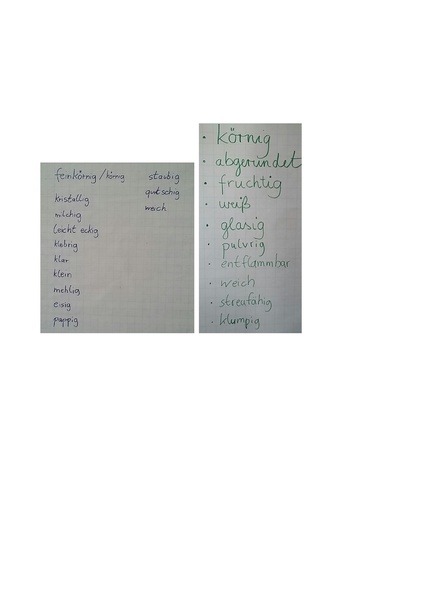 feinkörnig / körnig
kristallig
milchig
leicht eckig
klebrig
klar
klein
mehlig
eisig
pappig
staubig
quitschig
weich
• körnig
• abgerundet
• fruchtig
• weiß
• glasig
• pulvrig
• entflammbar
• weich
• streufähig
• klumpig